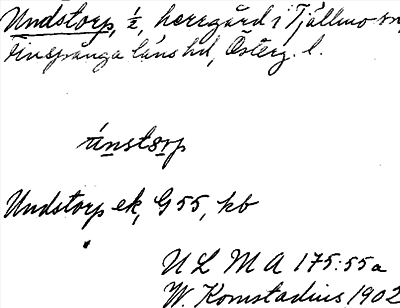 Undstorp, ½, herregård i Tjällmo sn,
Finspånga läns hd, Österg. l.
únstorp
Undstorp ek, G 55, kb
U L M A 175:55a
W. Komstadius 1902